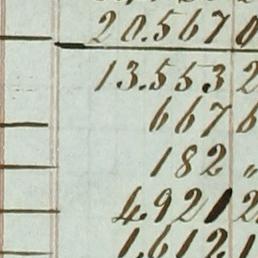 20.567 0
13.553 2
667 6
182 "
4.921 2
1.612 1